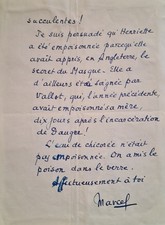 succulentes !
Je suis persuadé qu'Henriette
a été empoisonnée parcequ'elle
avait appris, en Angleterre, le
secret du Masque. Elle a
d'ailleurs été soignée par
Vallot, qui, l'année précédente,
avait empoisonné sa mère,
dix jours après l'incarcération
de Dauger !
L'eau de chicorée n'était
pas empoisonnée. On a mis le
poison dans le verre.
Affectueusement à toi
Marcel